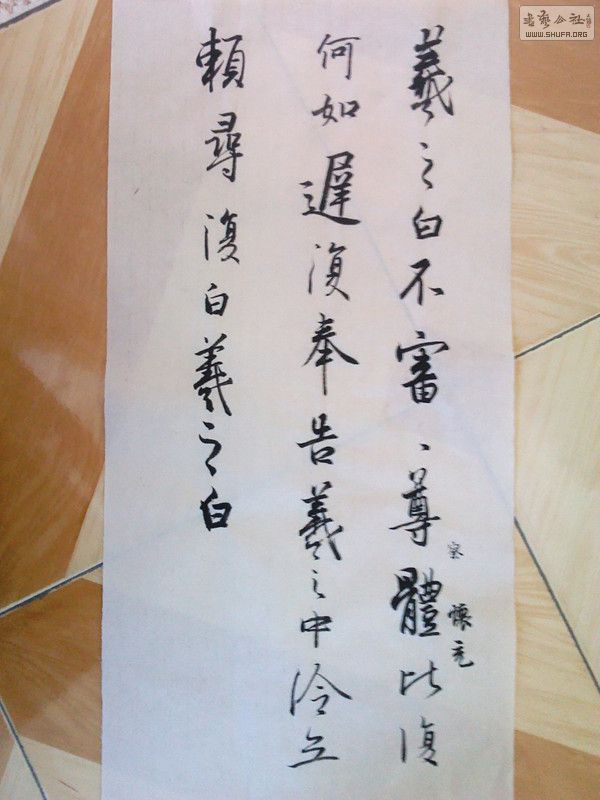 羲之白不審、尊體比復
何如遲復奉告羲之中冷立
賴尋復白羲之白
察
懷充
WWW.SHUFA.ORG